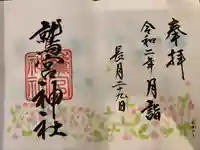 奉拝
令和二年 月詣
長月二十九日
鷲宮神社